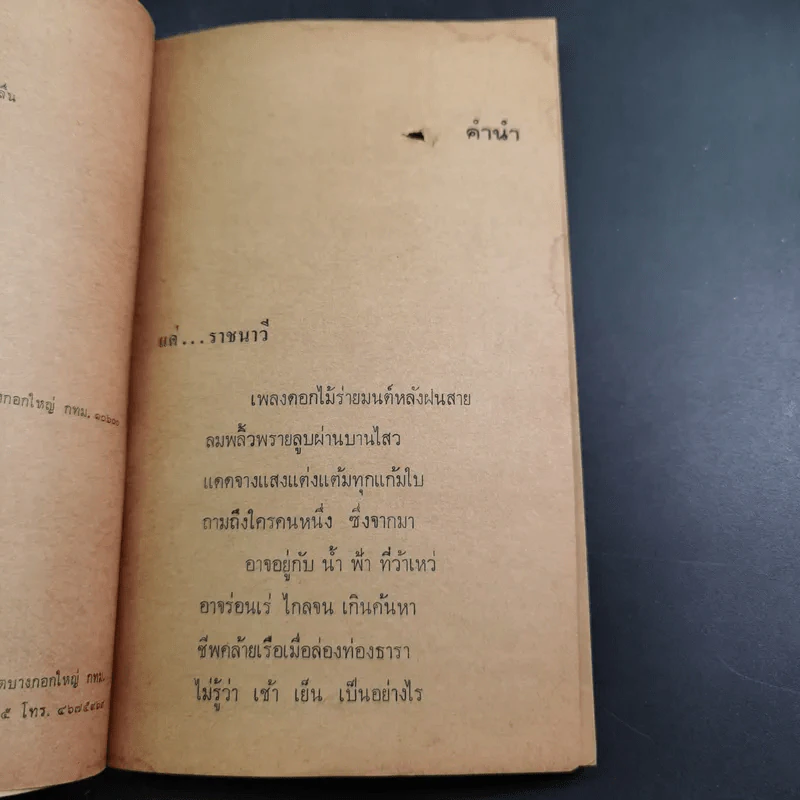 งกอกใหญ่ กทม. ๑๐๖๐๐
ตบางกอกใหญ่ กทม.
๕ โทร.
คำนำ
แด่...ราชนาวี
เพลงดอกไม้ร่ายมนต์หลังฝนสาย
ลมพลิ้วพรายลูบผ่านบานไสว
แดดจางแสงแต่งแต้มทุกแก้มใบ
ถามถึงใครคนหนึ่ง ซึ่งจากมา
อาจอยู่กับ น้ำ ฟ้า ที่ว้าเหว่
อาจร่อนเร่ ไกลจน เกินค้นหา
ชีพคล้ายเรือเมื่อล่องท่องธารา
ไม่รู้ว่า เช้า เย็น เป็นอย่างไร